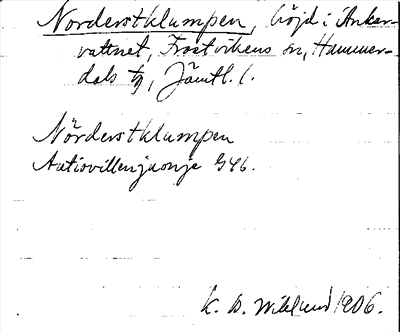 Norderstklumpen, höjd i Anker-
vattnet, Frostvikens sn, Hammer-
dals tg, Jämtl. l.
Nörderstklumpen
Autiovillenjuonje GYb.
K. B. Wiklund 1906.